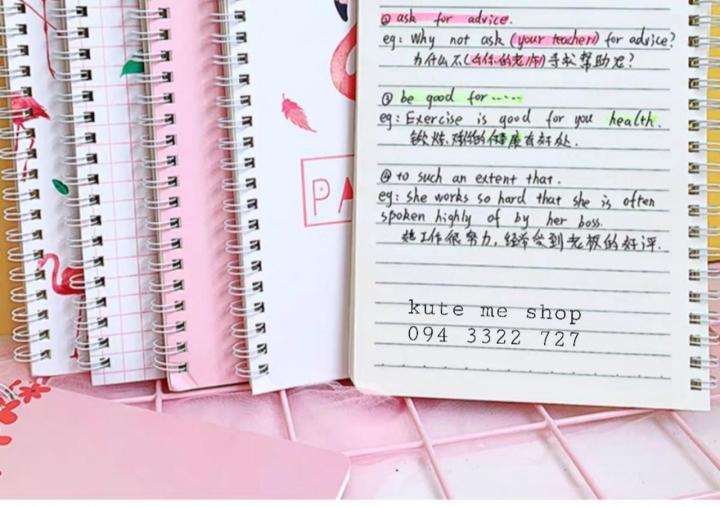 ② ask for advice.
eg: Why not ask (your teacher) for advice?
为什么不(向你的老师)寻求帮助呢?
③ be good for······
eg: Exercise is good for you health.
锻炼 对你的健康有好处.
④ to such an extent that.
eg: she works so hard that she is often
spoken highly of by her boss.
她工作很努力, 经常受到老板的好评.
PA
kute me shop
094 3322 727